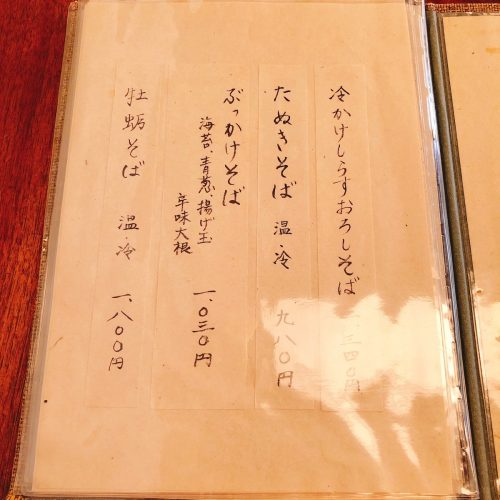 冷かけしらすおろしそば 一、三四〇円
たぬきそば 温・冷 九八〇円
ぶっかけそば
海苔、青葱、揚げ玉
辛味大根 一、〇三〇円
牡蛎そば 温・冷 一、八〇〇円